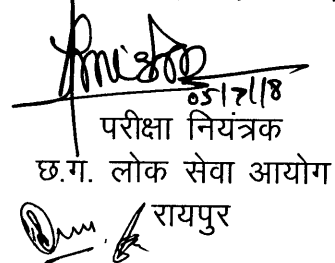 05/7/18
परीक्षा नियंत्रक
छ.ग. लोक सेवा आयोग
रायपुर